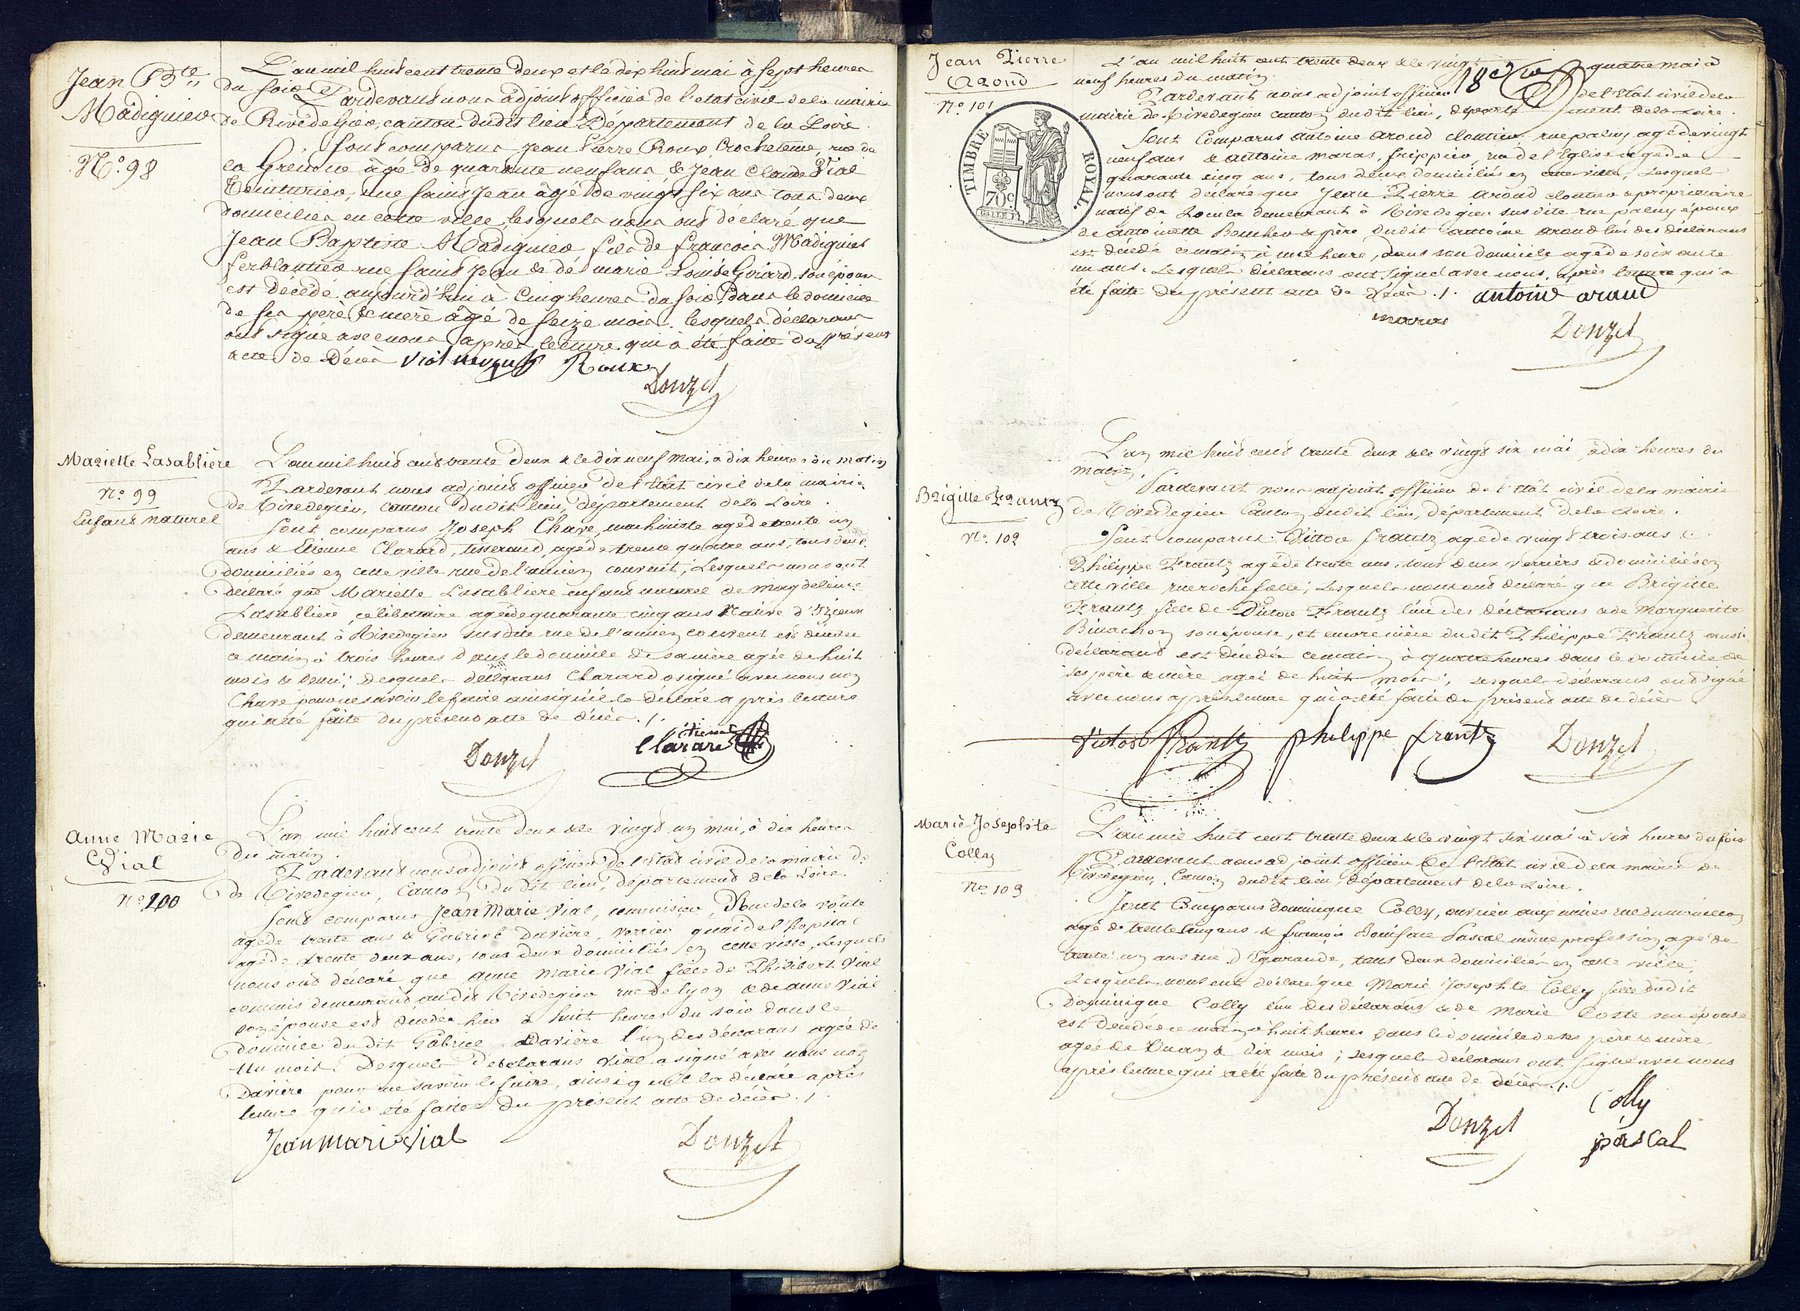 Jean Bte
Madignier
N° 98
L'an mil huit cent trente deux et le dix huit mai à sept heures
du soir Pardevant nous adjoint officier de l'état civil de la mairie
de Rivedegier, canton dudit lieu Département de la Loire.
Sont comparus Jean Pierre Roux Crocheteur, rue de
la Grenette âgé de quarante neuf ans & Jean Claude Vial
Teinturier, rue Saint Jean âgé de vingt six ans tous deux
domiciliés en cette ville, lesquels nous ont déclaré que
Jean Baptiste Madignier fils de françois Madignier
ferblantier rue Saint Jean & de marie Louise Girard son épouse
est décédé aujourd'hui à Cinq heures du soir Dans le domicile
de ses père & mère âgé de seize mois. lesquels déclarans
ont signé avec nous après lecture qui a été faite du présent
acte de Décès Vial Roux
Donzel
Mariette Lasablière
N° 99
Enfant naturel
L'an mil huit cent trente deux & le dix neuf mai, à dix heures du matin
Pardevant nous adjoint officier de l'Etat civil de la mairie
de Rivedegier, Canton dudit lieu, département de la Loire.
Sont comparus Joseph Chave, machiniste agé de trente un
ans & Etienne Clarard, tisserand, agé de trente quatre ans, tous deux
domiciliés en cette ville rue de l'ancien couvent, Lesquels nous ont
declaré que Mariette Lasabliere enfant naturel de Magdeleine
Lasablière, celibataire agée de quarante cinq ans native d'Izieux
demeurant à Rivedegier susdite rue de l'ancien couvent est décédée
ce matin à trois heures dans le domicile de sa mère agée de huit
mois & demi; desquels déclarans Clarard a signé avec nous non
Chave pour ne savoir le faire ainsi qu'il l'a déclaré après lecture
qui a été faite du présent acte de décès ./.
Donzel Etienne
Clarard
Anne Marie
Vial
N° 100
L'an mil huit cent trente deux & le vingt un mai, à dix heures
du matin.
Pardevant nous adjoint officier de l'Etat civil de la mairie de
de Rivedegier, Canton dudit lieu, département de la Loire.
Sont comparus Jean Marie Vial, commission, Rue de la voûte
agé de trente ans & Gabriel Davière, verrier quai de l'hopital
agé de trente deux ans, tous deux domiciliés en cette ville, Lesquels
nous ont déclaré que Anne Marie Vial fille de Philibert Vial
commis demeurant audit Rivedegier rue de Lyon & de anne Vial
son épouse est décédée hier à huit heures du soir dans le
domicile dudit Gabriel Davière l'un des déclarans agée de
un mois; Desquels déclarans Vial a signé avec nous non
Davière pour ne savoir le faire, ainsi qu'il l'a déclaré après
lecture qui a été faite du présent acte de décès ./.
Jean mari Vial Donzel
Jean Pierre
Aroud
N° 101
TIMBRE ROYAL.
70c
L'an mil huit cent trente deux & le vingt quatre mai à
neuf heures du matin. 18e
Pardevant nous adjoint officier de l'Etat civil de la
mairie de Rivedegier canton dudit lieu, département de la Loire.
Sont Comparus Antoine Aroud cloutier, rue paluy agé de vingt
neuf ans & Antoine Maras, frippier, rue de l'Eglise agé de
quarante cinq ans, tous deux domiciliés en cette ville, Lesquels
nous ont déclaré que Jean Pierre Aroud cloutier & propriétaire
natif de demeurant à Rivedegier susdite rue paluy époux
de Antoinette & père dudit Antoine Aroud l'un des déclarans
est décédé ce matin à une heure, dans son domicile agé de soixante
un ans. Lesquels déclarans ont signé avec nous, après lecture qui a
été faite du présent acte de décès ./. antoine aroud
maras Donzel
Brigitte Frantz
N° 102
L'an mil huit cent trente deux & le vingt six mai à dix heures du
matin.
Pardevant nous adjoint officier de l'Etat civil de la mairie
de Rivedegier Canton dudit lieu, département de la Loire.
Sont comparus Victor Frantz agé de vingt trois ans &
Philippe Frantz agé de trente ans, tous deux verriers & domiciliés en
cette ville rue richefalle; Lesquels nous ont déclaré que Brigitte
Frantz fille de Victor Frantz l'un des déclarans & de Marguerite
son épouse, et encore nièce dudit Philippe Frantz aussi
déclarant est décédée ce matin à quatre heures dans le domicile de
ses père & mère agée de huit mois; Lesquels déclarans ont signé
avec nous après lecture qui a été faite du présent acte de décès
Victor frantz philippe frantz Donzel
Marie Josephte
Colly
N° 103
L'an mil huit cent trente deux & le vingt six mai à six heures du soir
Pardevant nous adjoint officier de l'Etat civil de la mairie de
Rivedegier, Canton dudit lieu, département de la Loire.
Sont Comparus Dominique Colly, ouvrier aux mines rue du
agé de trente cinq ans & françois Boniface Pascal même profession, agé de
trente un ans rue d'Egarande, tous deux domiciliés en cette ville,
Lesquels nous ont déclaré que Marie Josephte Colly fille dudit
Dominique Colly l'un des déclarans & de Marie Coste son épouse
est décédée ce matin à huit heures dans le domicile de ses père & mère
agée de Deux ans & dix mois; Lesquels déclarans ont signé avec nous
après lecture qui a été faite du présent acte de décès ./.
Donzel Colly
pascal